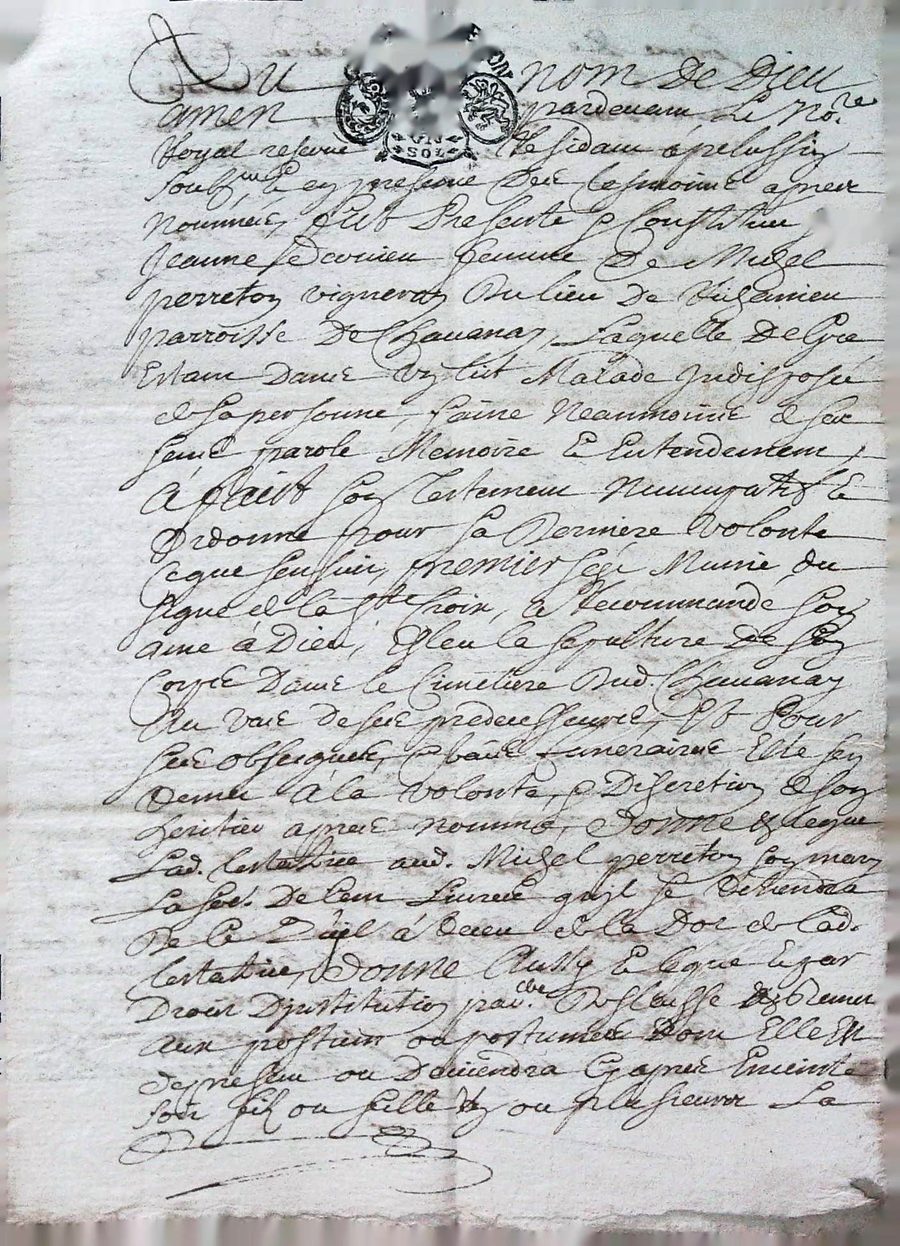 Au nom De Dieu
amen, pardevant Le No.re
Royal reservé Residant à pelussin
soubsig.né Et en presence Des tesmoins apres
nommés, fut Presente & Constituee
Jeanne femme De Michel
perreton vigneron Du lieu De
parroisse De Chavanay, Laquelle De Gre
Estant Dans Un lict Malade Indisposee
de sa personne, saine Neanmoins de ses
sens parole Memoire Et Entendement,
à faict son testement Nuncupatif Et
Ordonne pour sa Derniere Volonté
Ceque sensuit, premier sest Munie du
signe de la S.te Croix, a Recommandé son
ame à Dieu, Esleu la sepulture De son
Corps Dans le Cimetiere Dud. Chavanay
Au vas de ses predecesseurs, Et Pour
ses obseques, & frais funeraires Elle sen
demet à la volonté, & Discretion de son
heritier apres nommé, Donne & legue
Lad. testatrice aud. Michel perreton son mary
La so.e De cent Livres quil se Retiendra
De la Dot de Lad.
testatrice, Donne Aussy Et legue Et par
Droit Dinstitution
aux posthum ou postumes Dont Elle Est
apresent ou Deviendra Cyapres Enceinte
soit fils ou fille Un ou plusieurs La